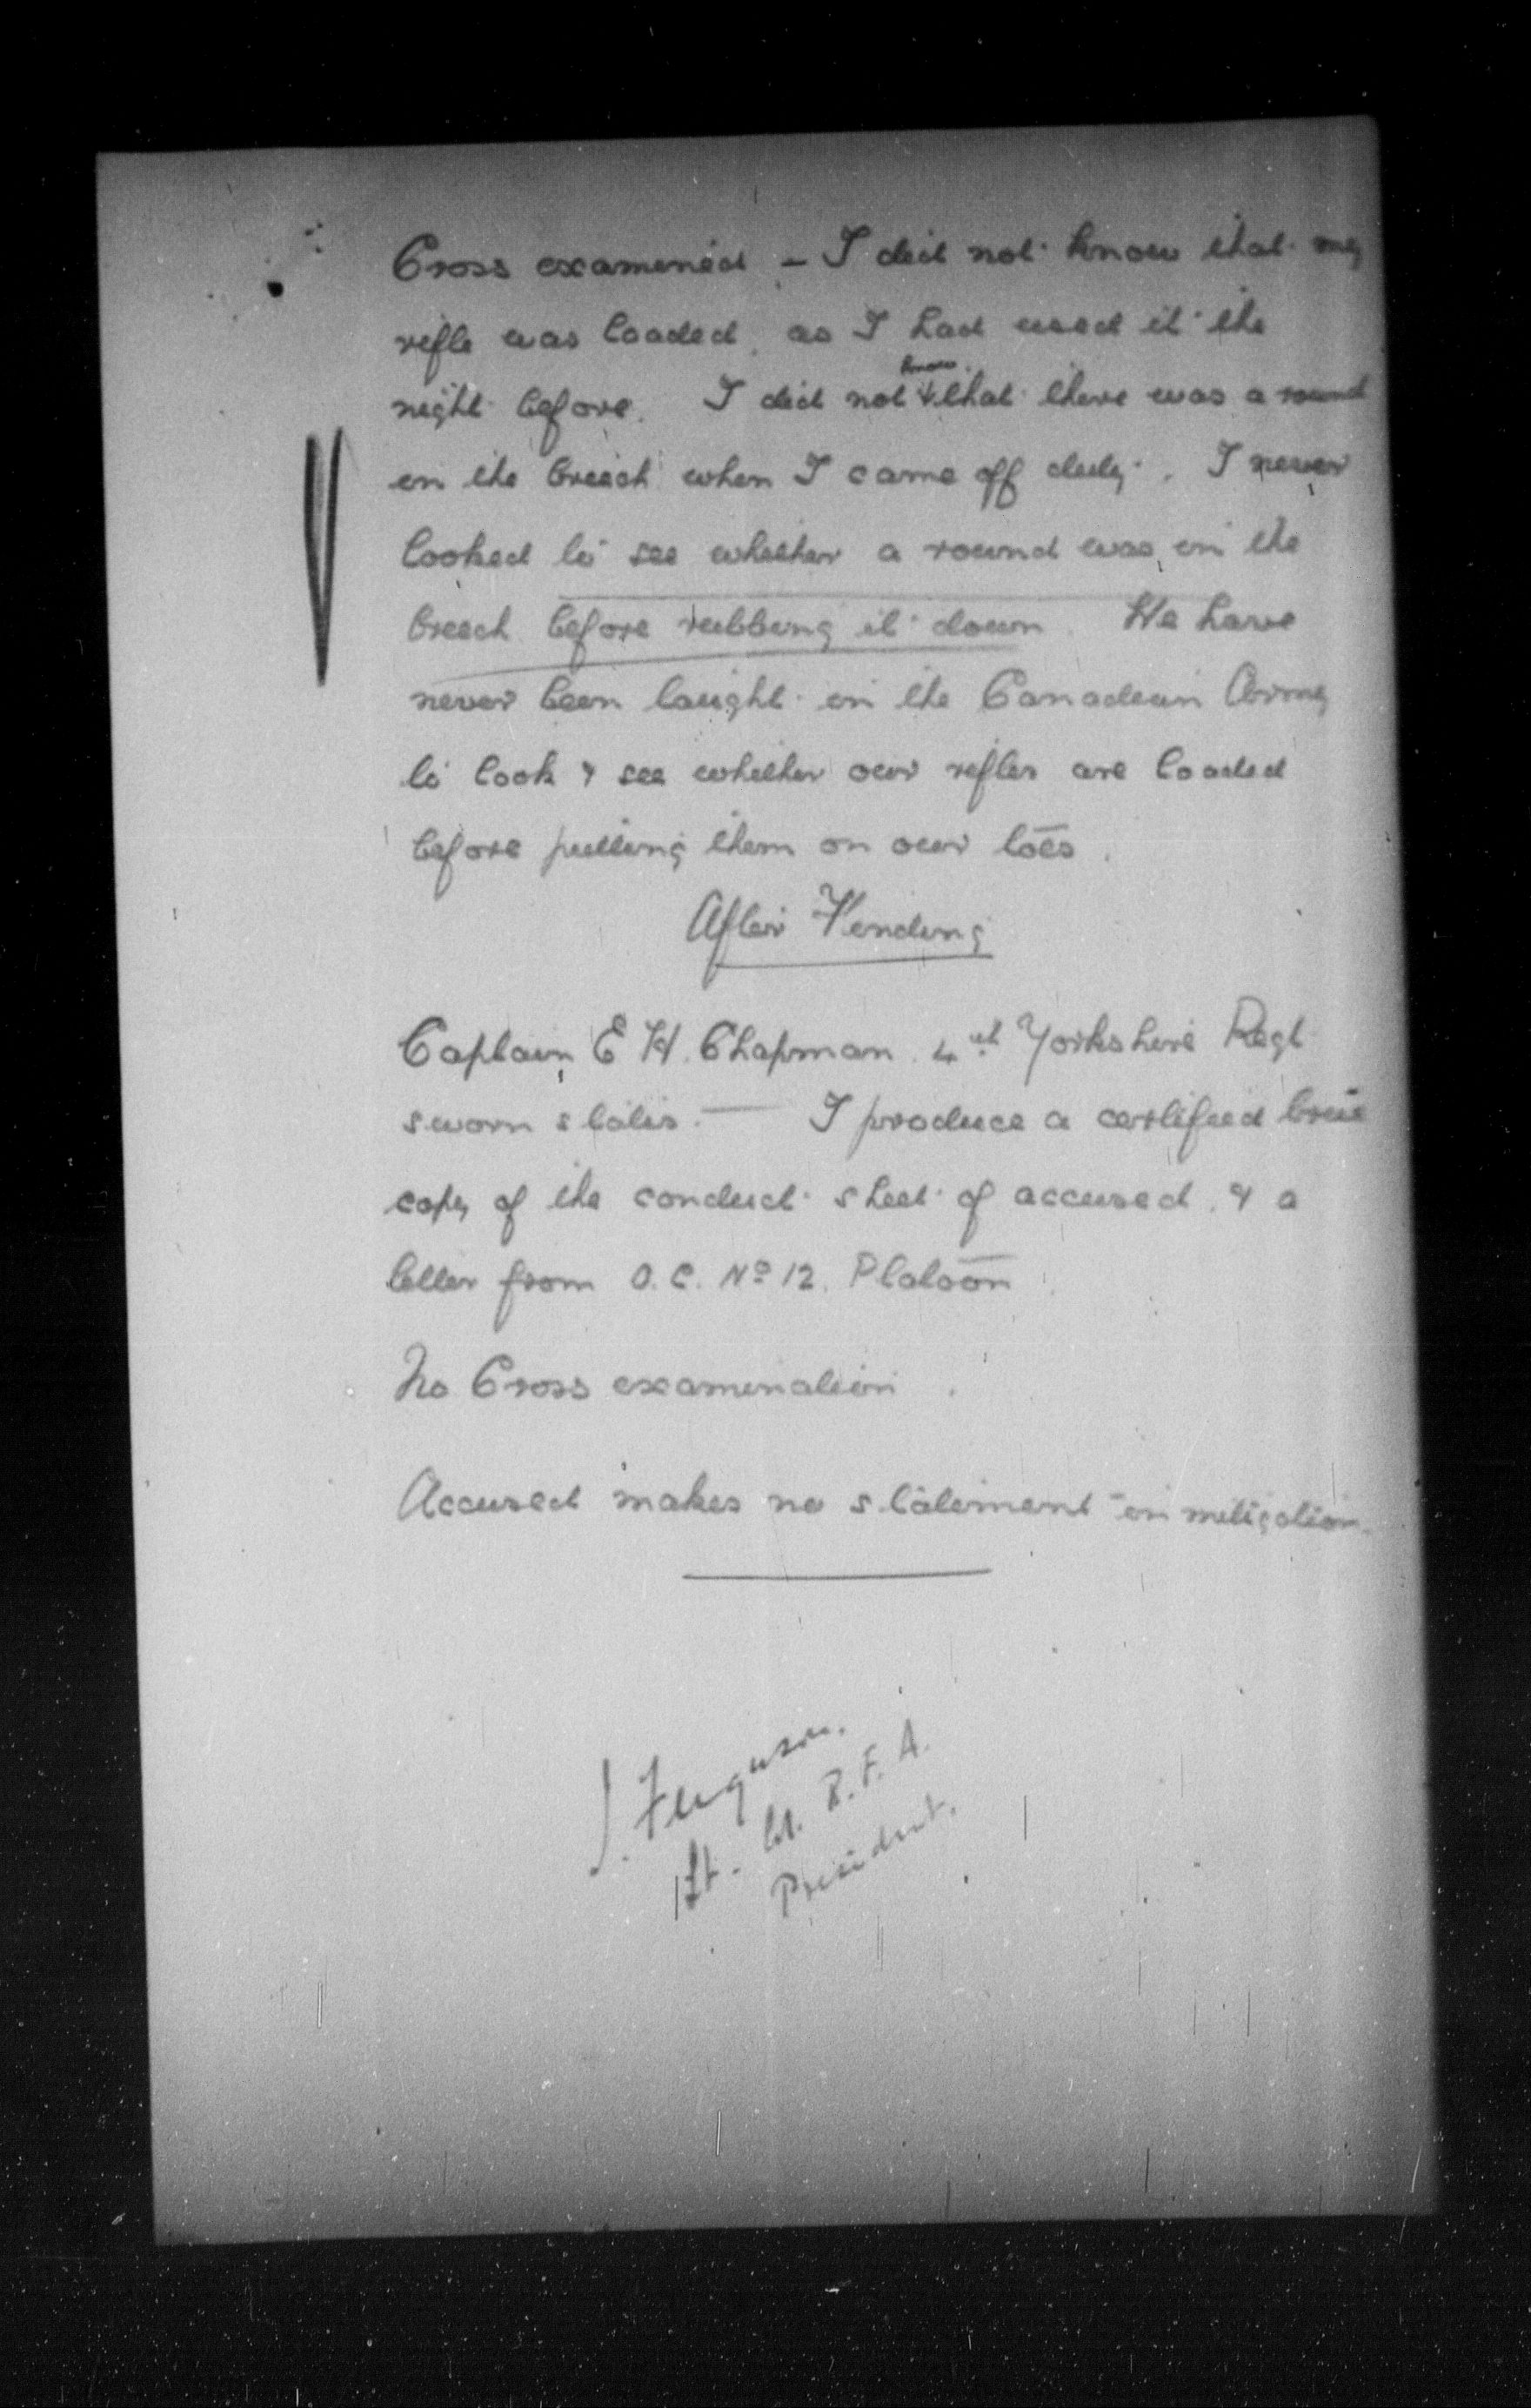 Cross examined – I did not know that my
rifle was loaded, as I had used it the
night before. I did not know that there was a round
in the breech when I came off duty. I never
looked to see whether a round was in the
breech before rubbing it down. We have
never been taught in the Canadian Army
to look & see whether our rifles are loaded
before putting them on our toes.
After Finding
Captain E H. Chapman. 4th Yorkshire Regt
sworn states. — I produce a certified true
copy of the conduct sheet of accused, & a
letter from O.C. No 12. Platoon
No Cross examination.
Accused makes no statement in mitigation.
J. Ferguson.
Lt. Col. R.F.A.
President.